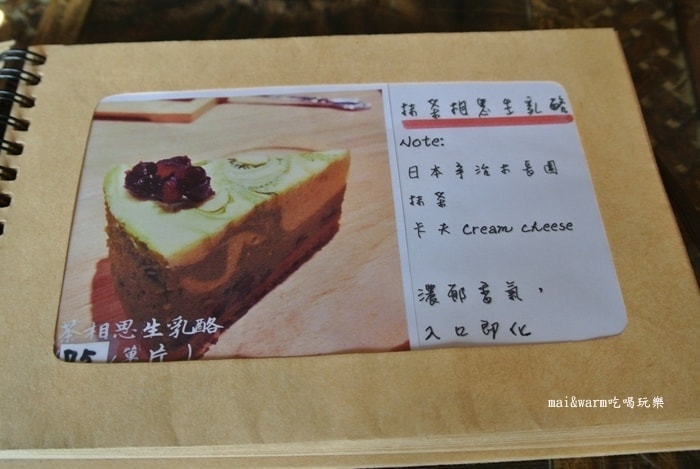 抹茶相思生乳酪
Note:
日本宇治丸長園
抹茶
卡夫 Cream cheese
濃郁香氣,
入口即化
茶相思生乳酪
95/單片
mai&warm吃喝玩樂